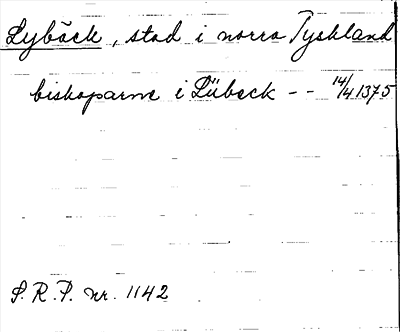 Lybäck, stad i norra Tyskland
biskoparne i Lübeck - - 14/4 1375
S.R.P. nr. 1142